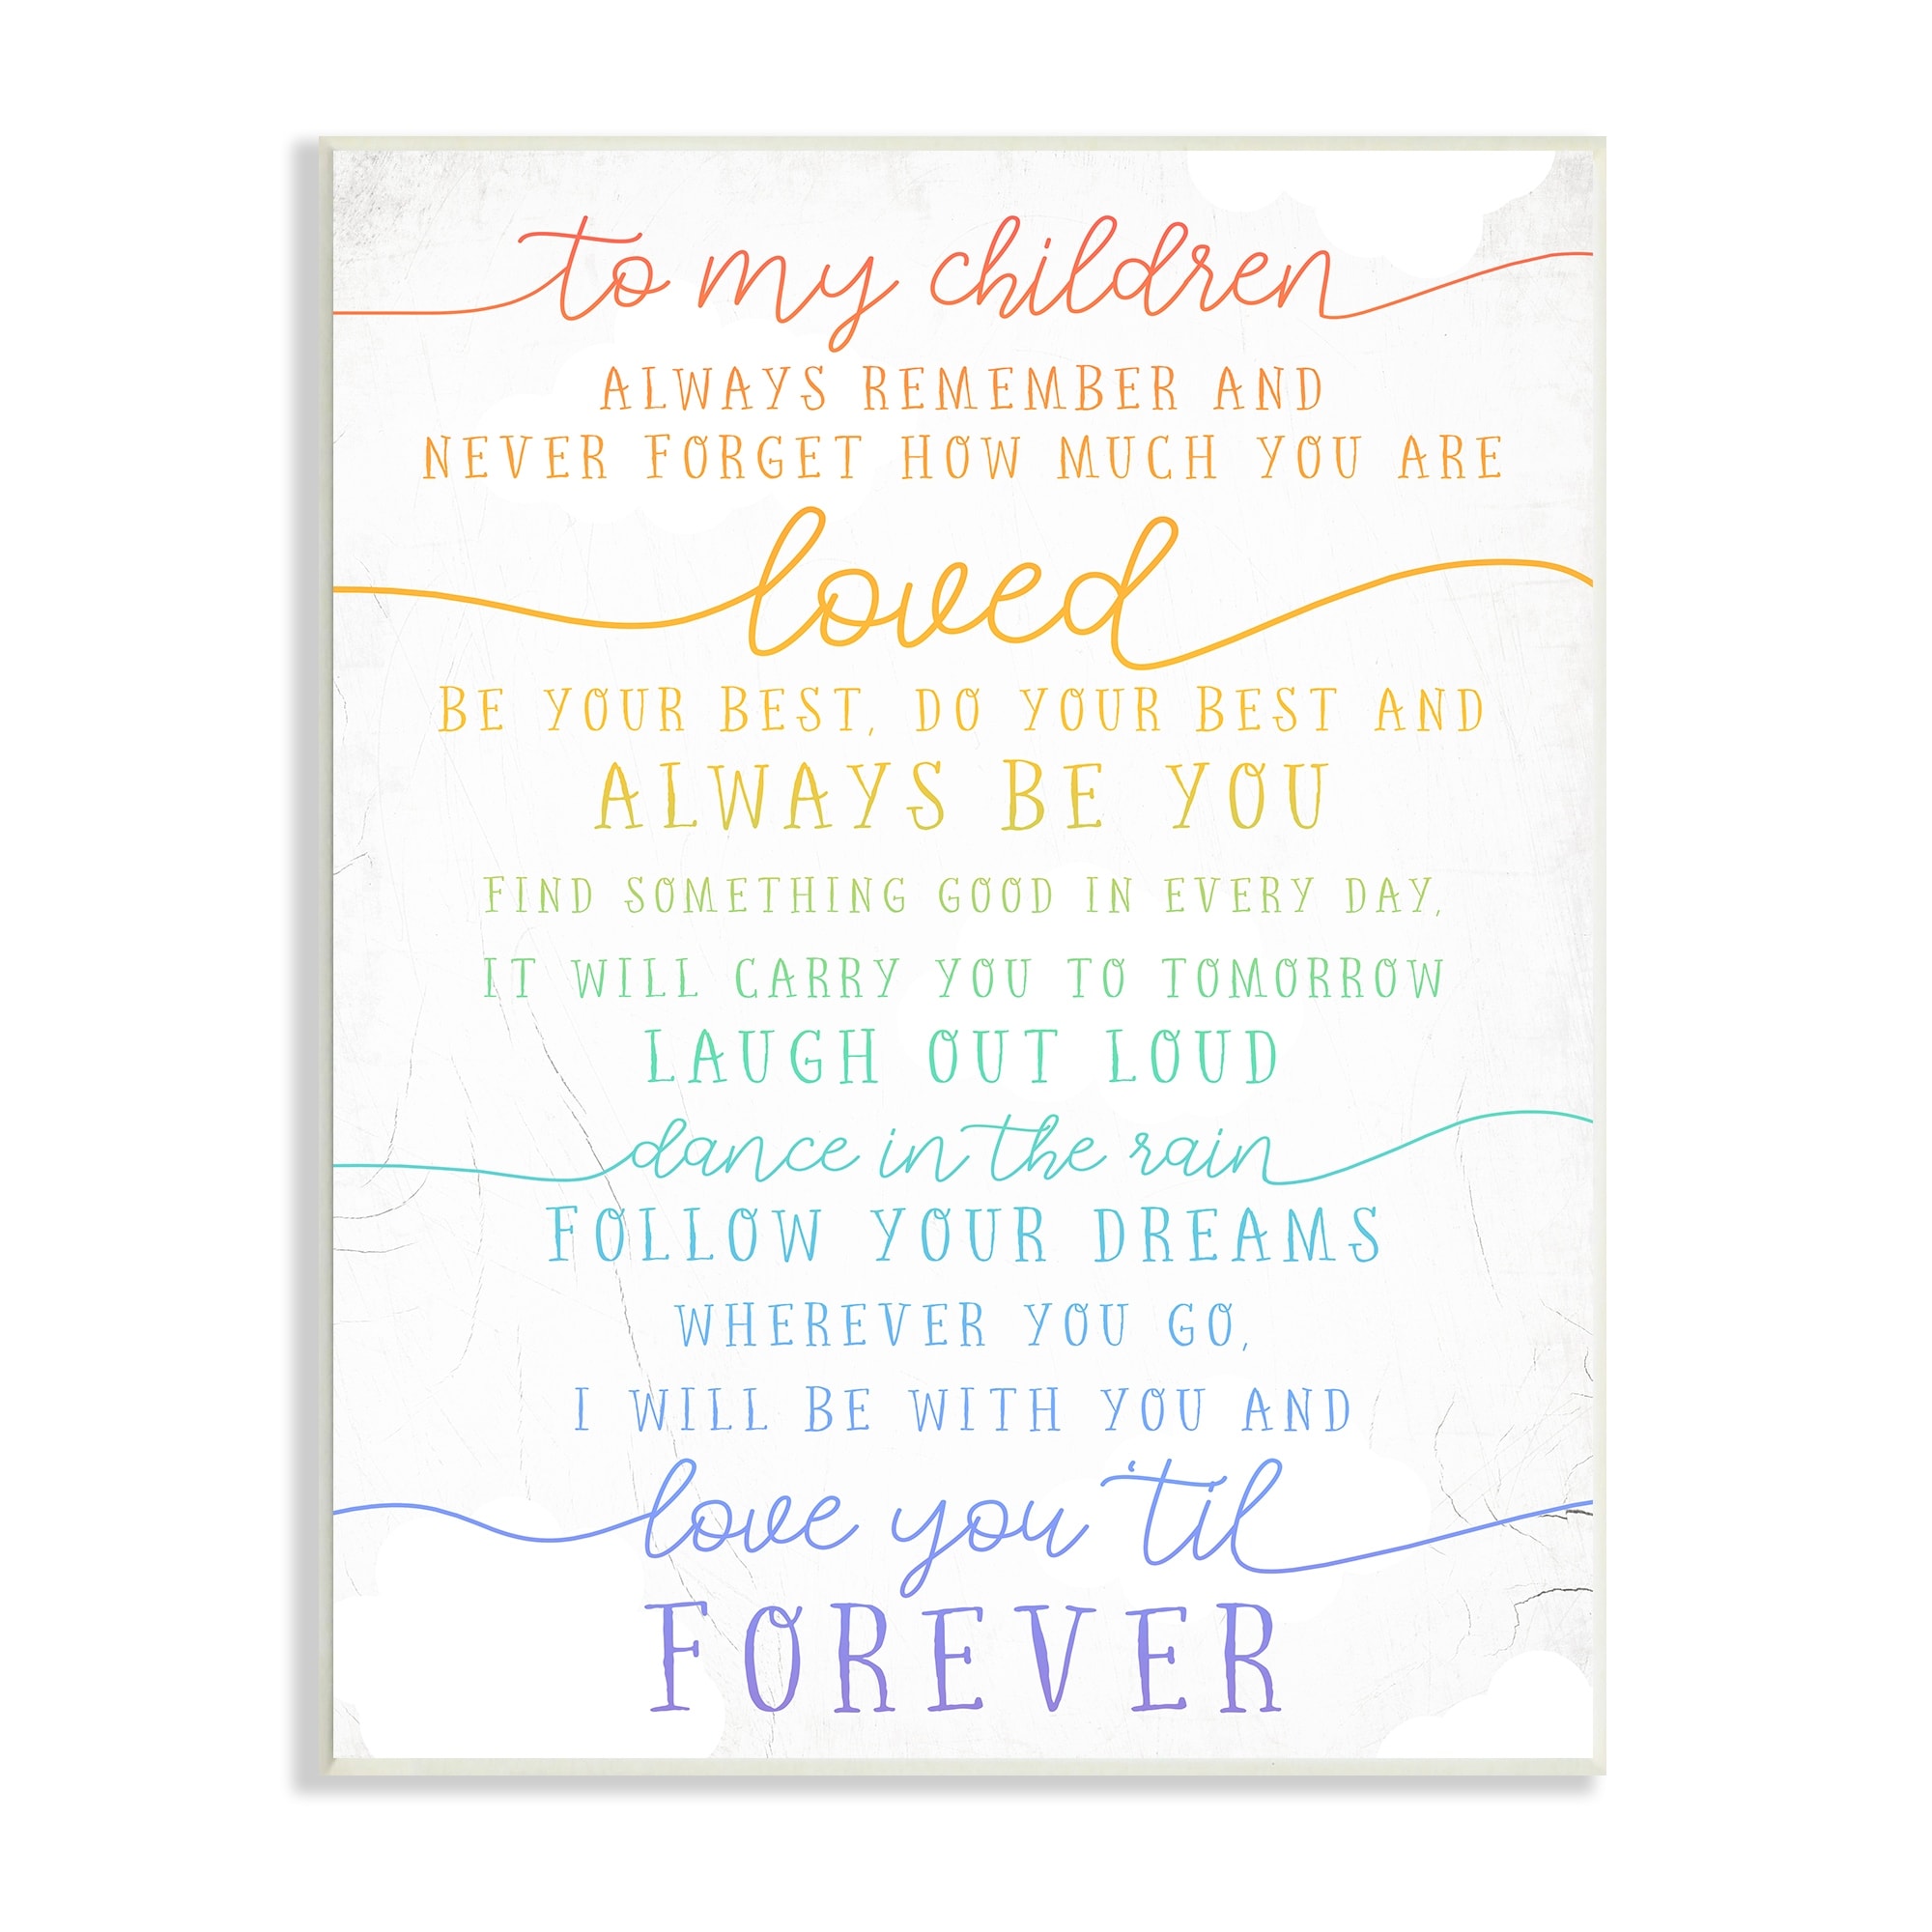 to my children
ALWAYS REMEMBER AND
NEVER FORGET HOW MUCH YOU ARE
loved
BE YOUR BEST, DO YOUR BEST AND
ALWAYS BE YOU
FIND SOMETHING GOOD IN EVERY DAY,
IT WILL CARRY YOU TO TOMORROW
LAUGH OUT LOUD
dance in the rain
FOLLOW YOUR DREAMS
WHEREVER YOU GO,
I WILL BE WITH YOU AND
love you 'til
FOREVER